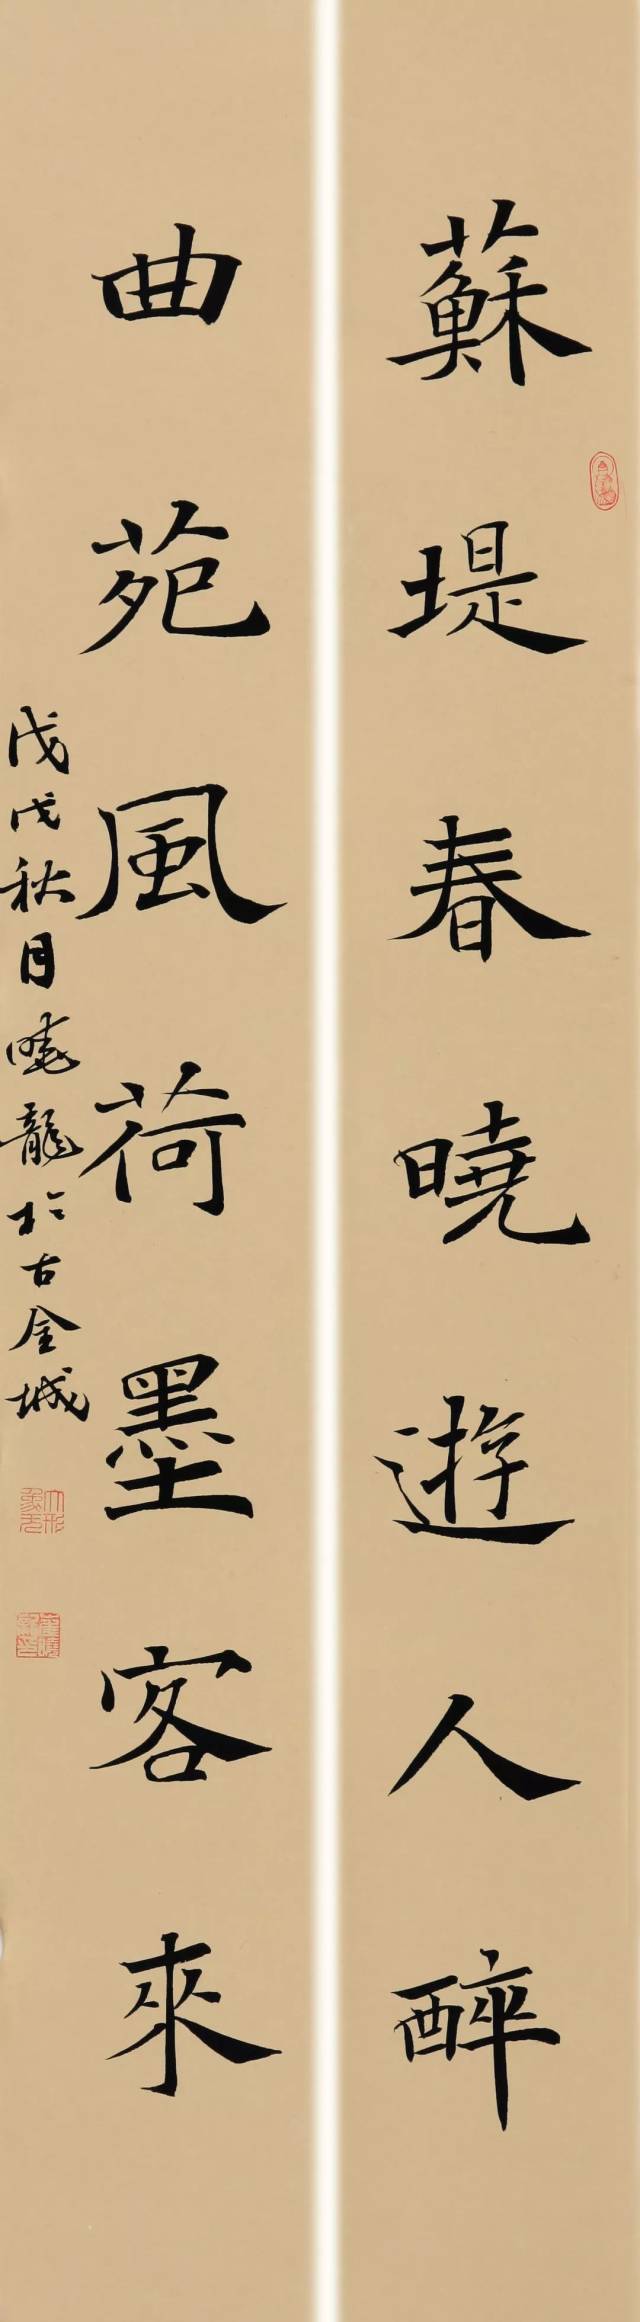 蘇堤春曉遊人醉
曲苑風荷墨客來
戊戌秋月曉龍於古金城